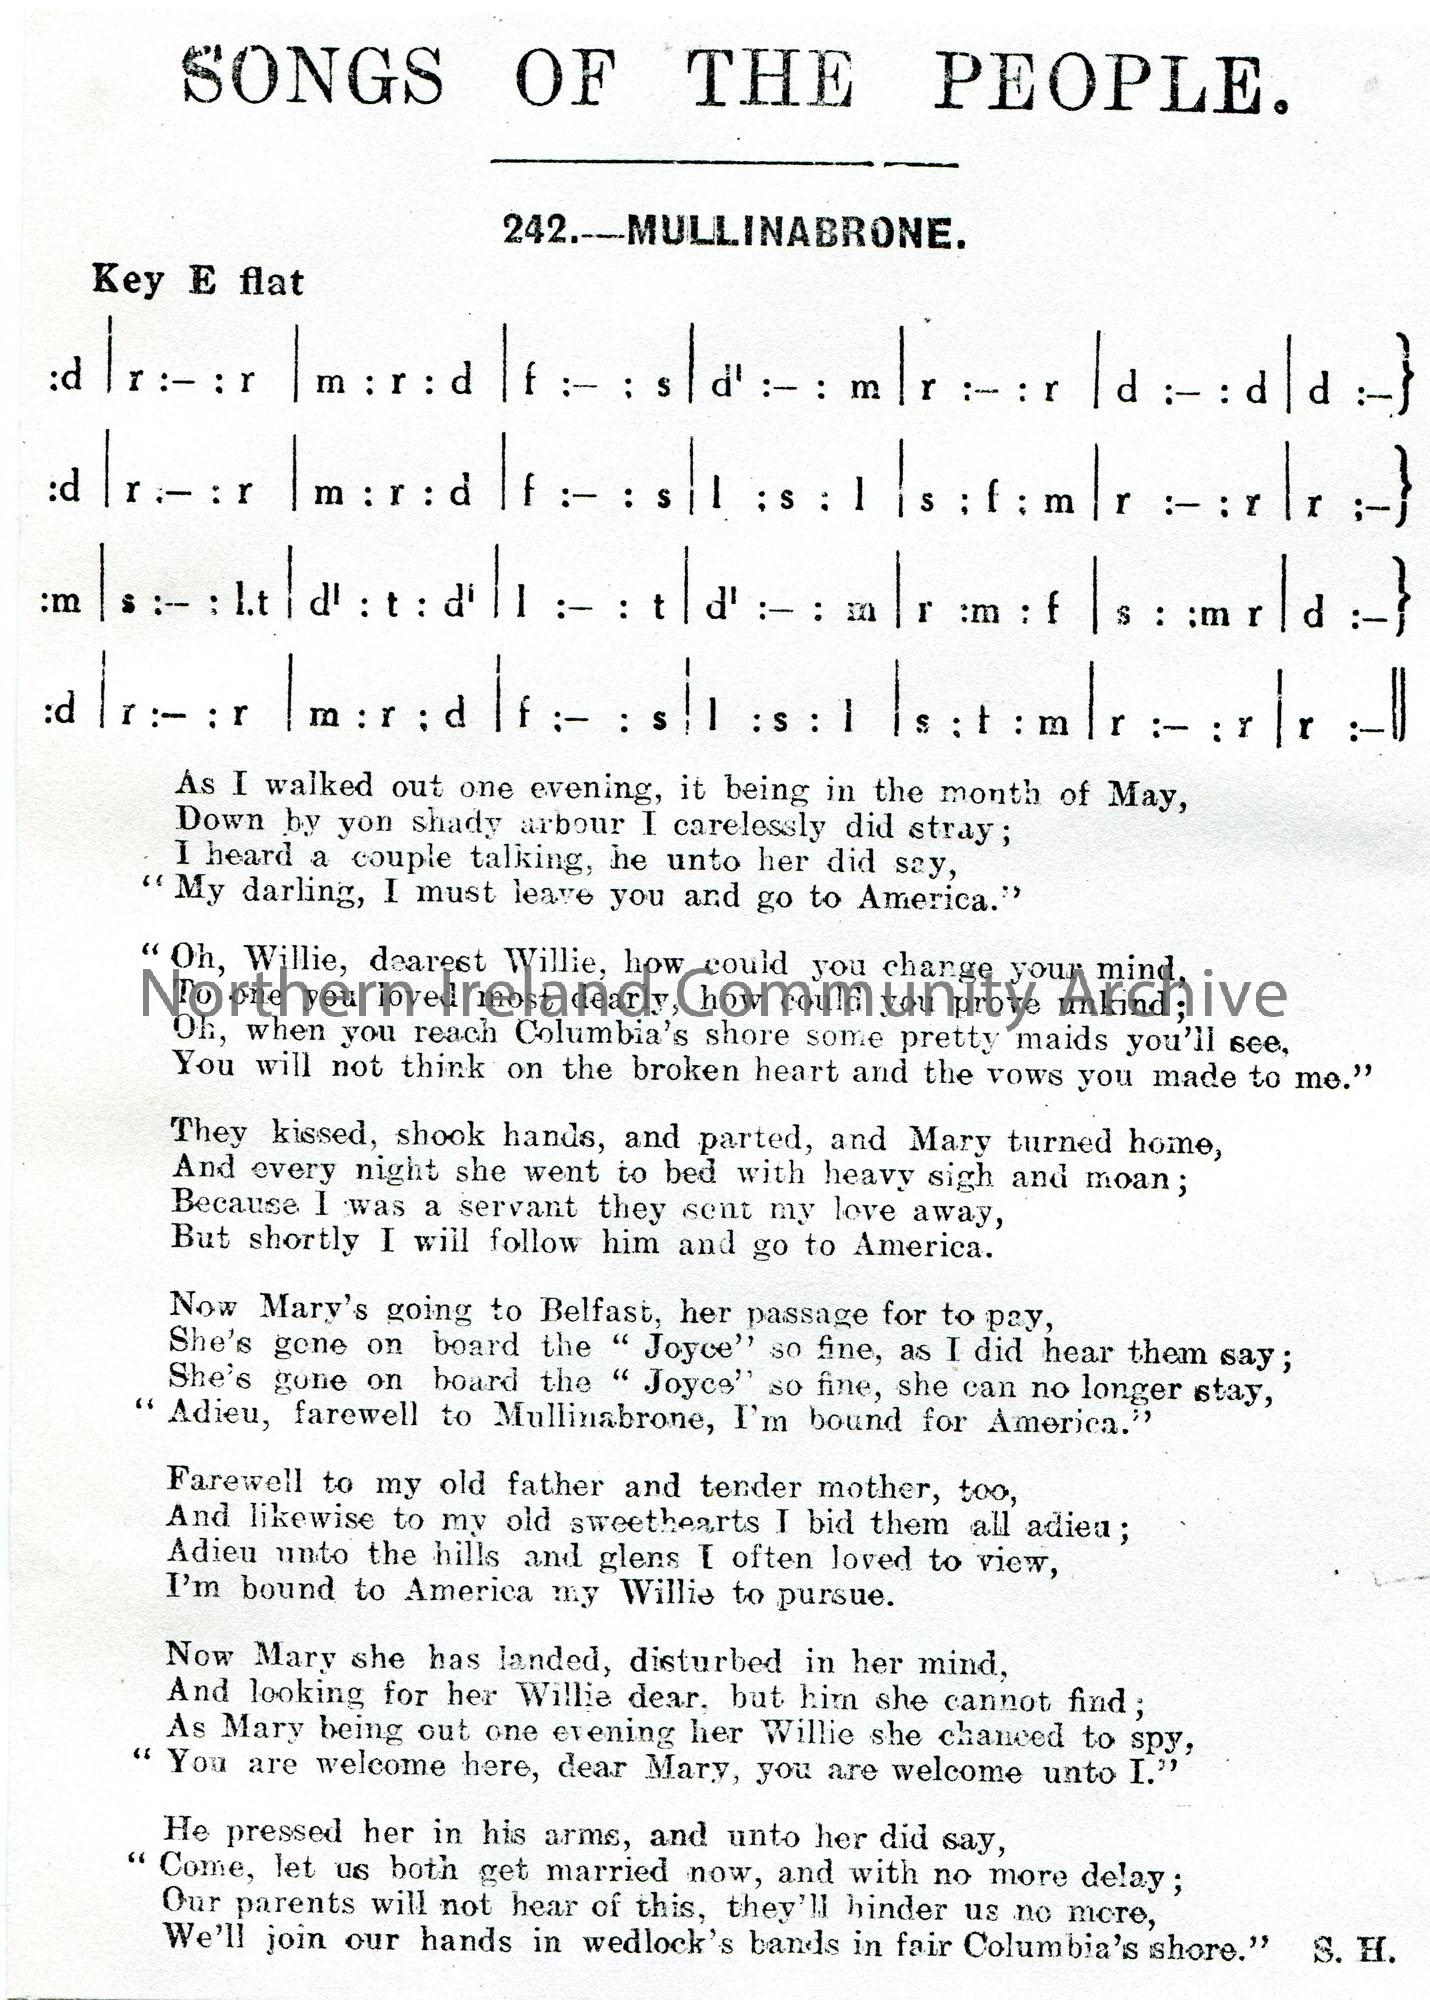 SONGS OF THE PEOPLE.
242.—MULLINABRONE.
Key E flat
:d | r :– : r | m : r : d | f :– : s | d' :– : m | r :– : r | d :– : d | d :– }
:d | r :– : r | m : r : d | f :– : s | l : s : l | s : f : m | r :– : r | r :– }
:m | s :– : l.t | d' : t : d' | l :– : t | d' :– : m | r :m : f | s : :m r | d :– }
:d | r :– : r | m : r : d | f :– : s | l : s : l | s : f : m | r :– : r | r :– ||
As I walked out one evening, it being in the month of May,
Down by yon shady arbour I carelessly did stray;
I heard a couple talking, he unto her did say,
“ My darling, I must leave you and go to America.”
“ Oh, Willie, dearest Willie, how could you change your mind,
Northern Ireland Community Archive
To one you loved most dearly, how could you prove unkind;
Oh, when you reach Columbia's shore some pretty maids you'll see,
You will not think on the broken heart and the vows you made to me.”
They kissed, shook hands, and parted, and Mary turned home,
And every night she went to bed with heavy sigh and moan;
Because I was a servant they sent my love away,
But shortly I will follow him and go to America.
Now Mary's going to Belfast, her passage for to pay,
She's gone on board the “ Joyce” so fine, as I did hear them say;
She's gone on board the “ Joyce” so fine, she can no longer stay,
“ Adieu, farewell to Mullinabrone, I'm bound for America.”
Farewell to my old father and tender mother, too,
And likewise to my old sweethearts I bid them all adieu;
Adieu unto the hills and glens I often loved to view,
I'm bound to America my Willie to pursue.
Now Mary she has landed, disturbed in her mind,
And looking for her Willie dear, but him she cannot find;
As Mary being out one evening her Willie she chanced to spy,
“ You are welcome here, dear Mary, you are welcome unto I.”
He pressed her in his arms, and unto her did say,
“ Come, let us both get married now, and with no more delay;
Our parents will not hear of this, they'll hinder us no more,
We'll join our hands in wedlock's bands in fair Columbia's shore.” S. H.